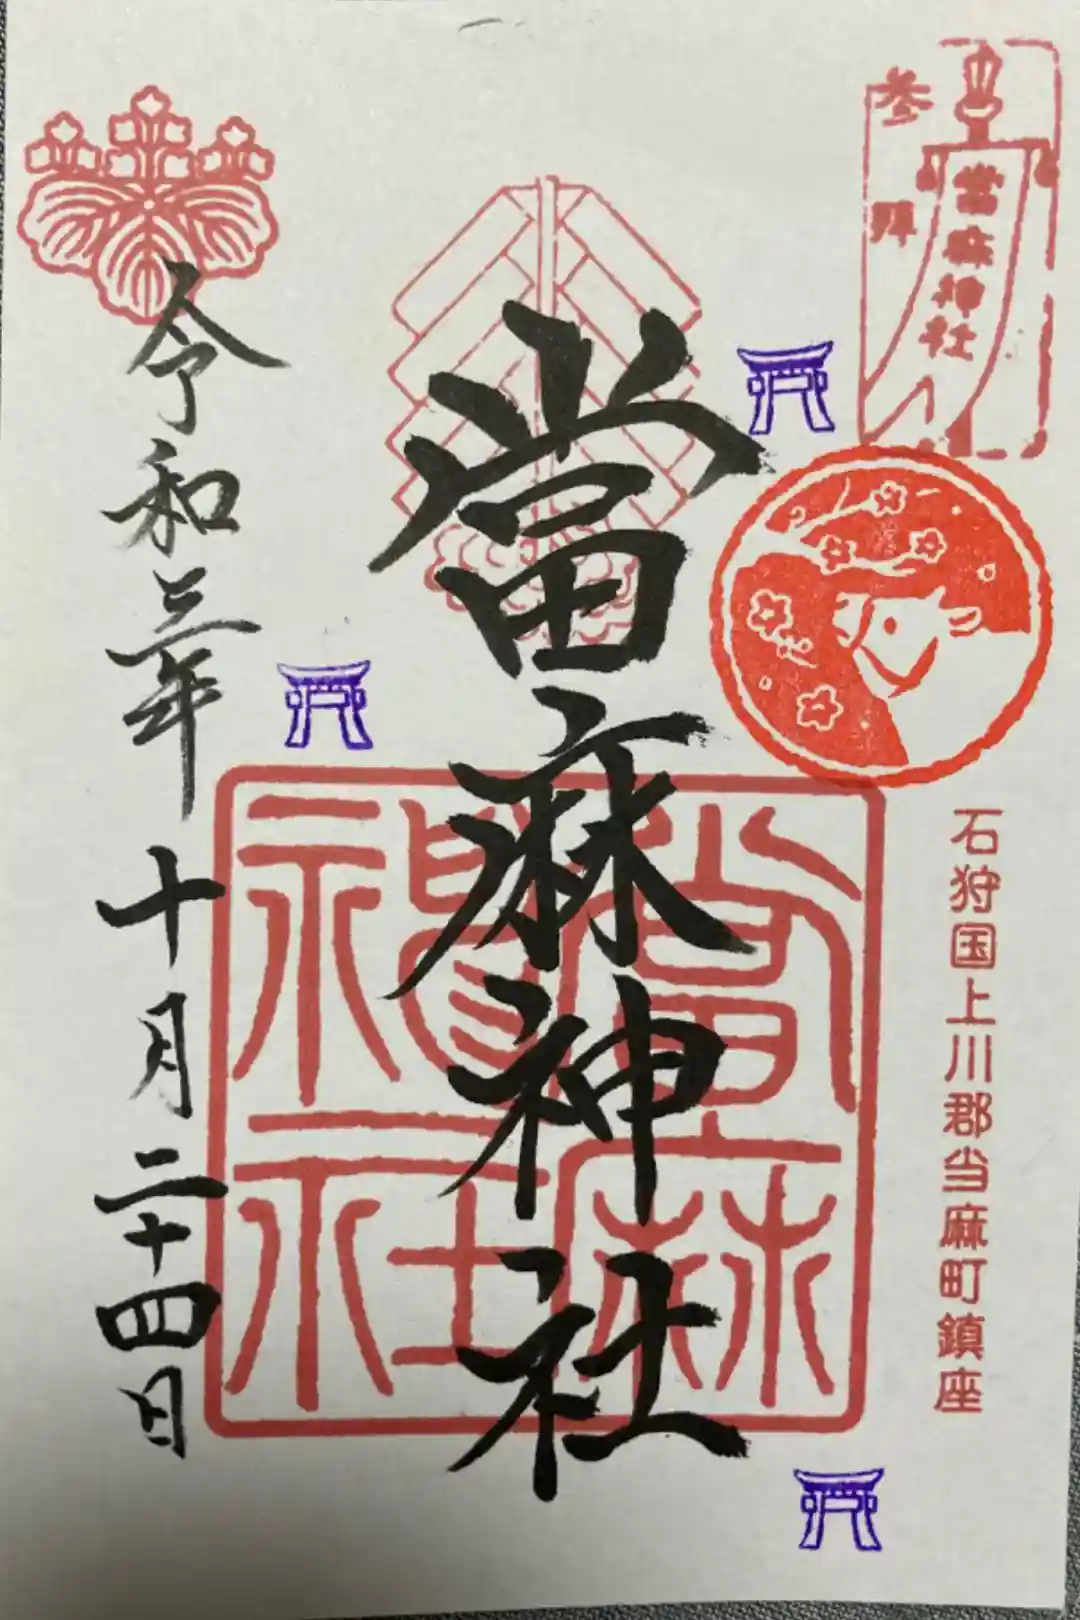 参拝
當麻神社
石狩国上川郡当麻町鎮座
當麻神社
當麻
神社
令和三年十月二十四日